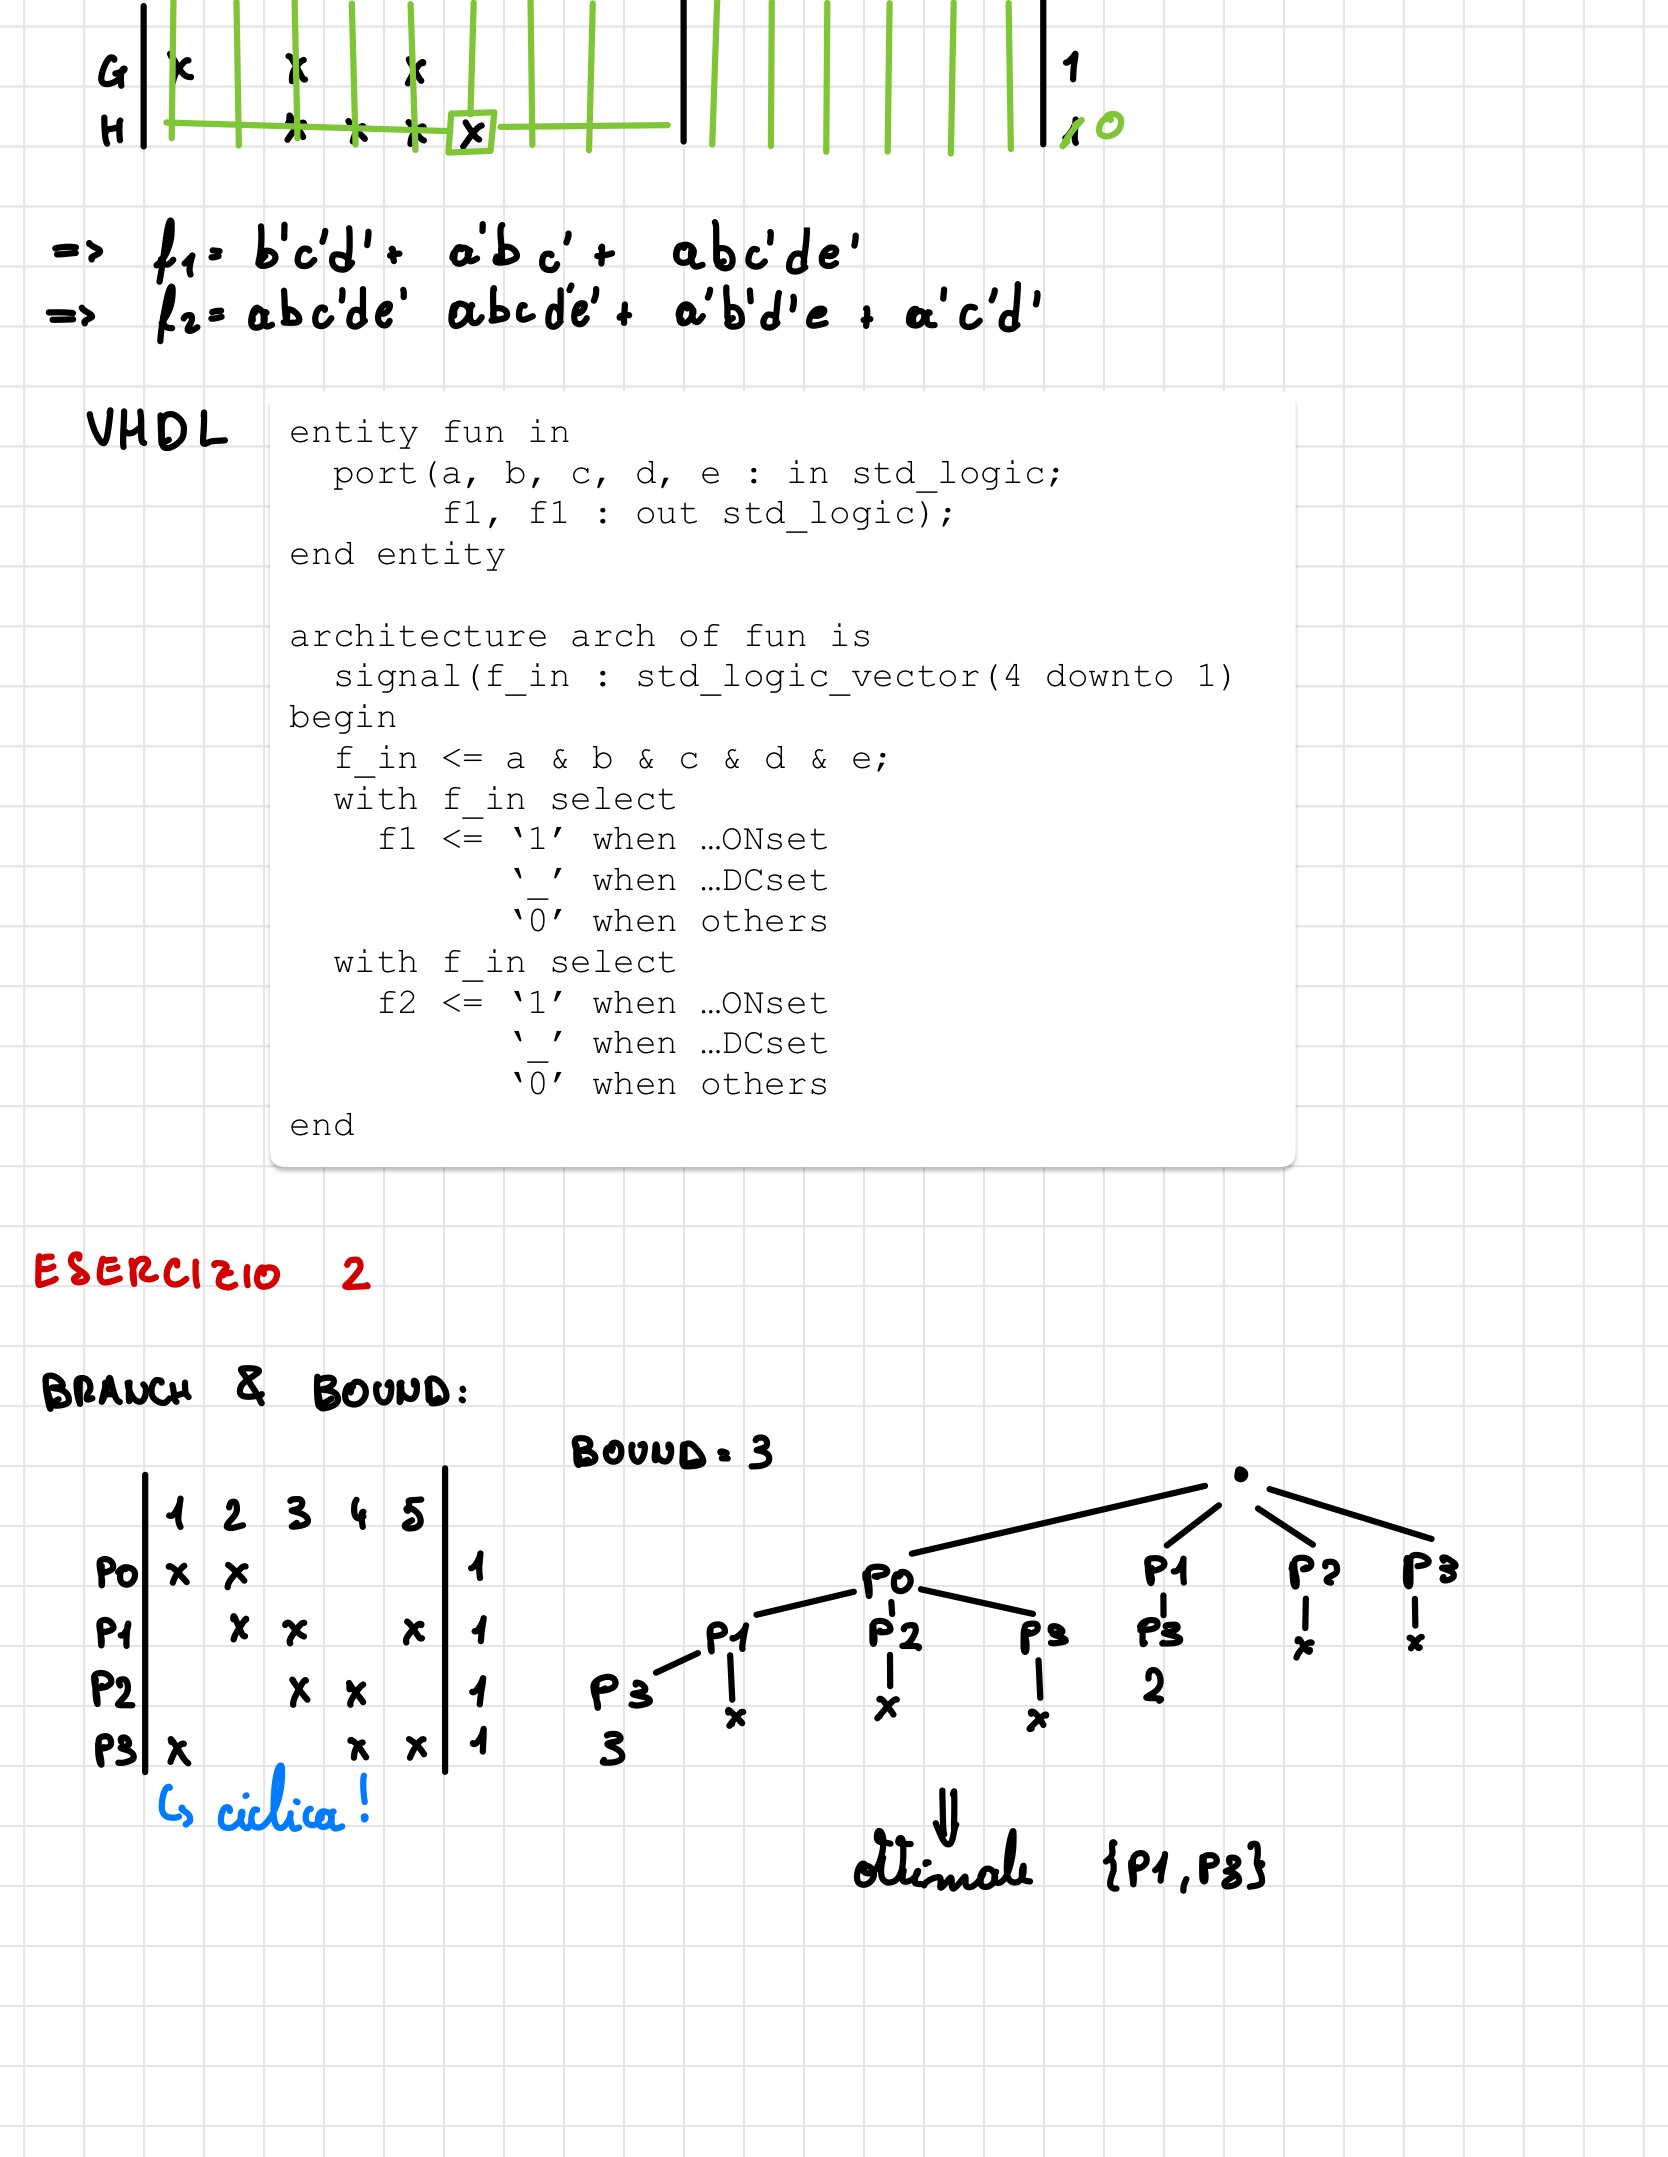 G x x x 1
H x x x x 1 0
=> f1 = b'c'd' + a'bc' + abc'de'
=> f2 = abc'de' abcd'e' + a'b'd'e + a'c'd'
VHDL
entity fun in
port(a, b, c, d, e : in std_logic;
f1, f1 : out std_logic);
end entity
architecture arch of fun is
signal(f_in : std_logic_vector(4 downto 1)
begin
f_in <= a & b & c & d & e;
with f_in select
f1 <= ‘1’ when …ONset
‘_’ when …DCset
‘0’ when others
with f_in select
f2 <= ‘1’ when …ONset
‘_’ when …DCset
‘0’ when others
end
ESERCIZIO 2
BRANCH & BOUND:
1 2 3 4 5
P0 x x 1
P1 x x x 1
P2 x x 1
P3 x x x 1
↳ ciclica!
BOUND = 3
P0 P1 P2 P3
P1 P2 P3 P3 x x
P3 x x x 2
3
⇓
ottimale {P1, P3}